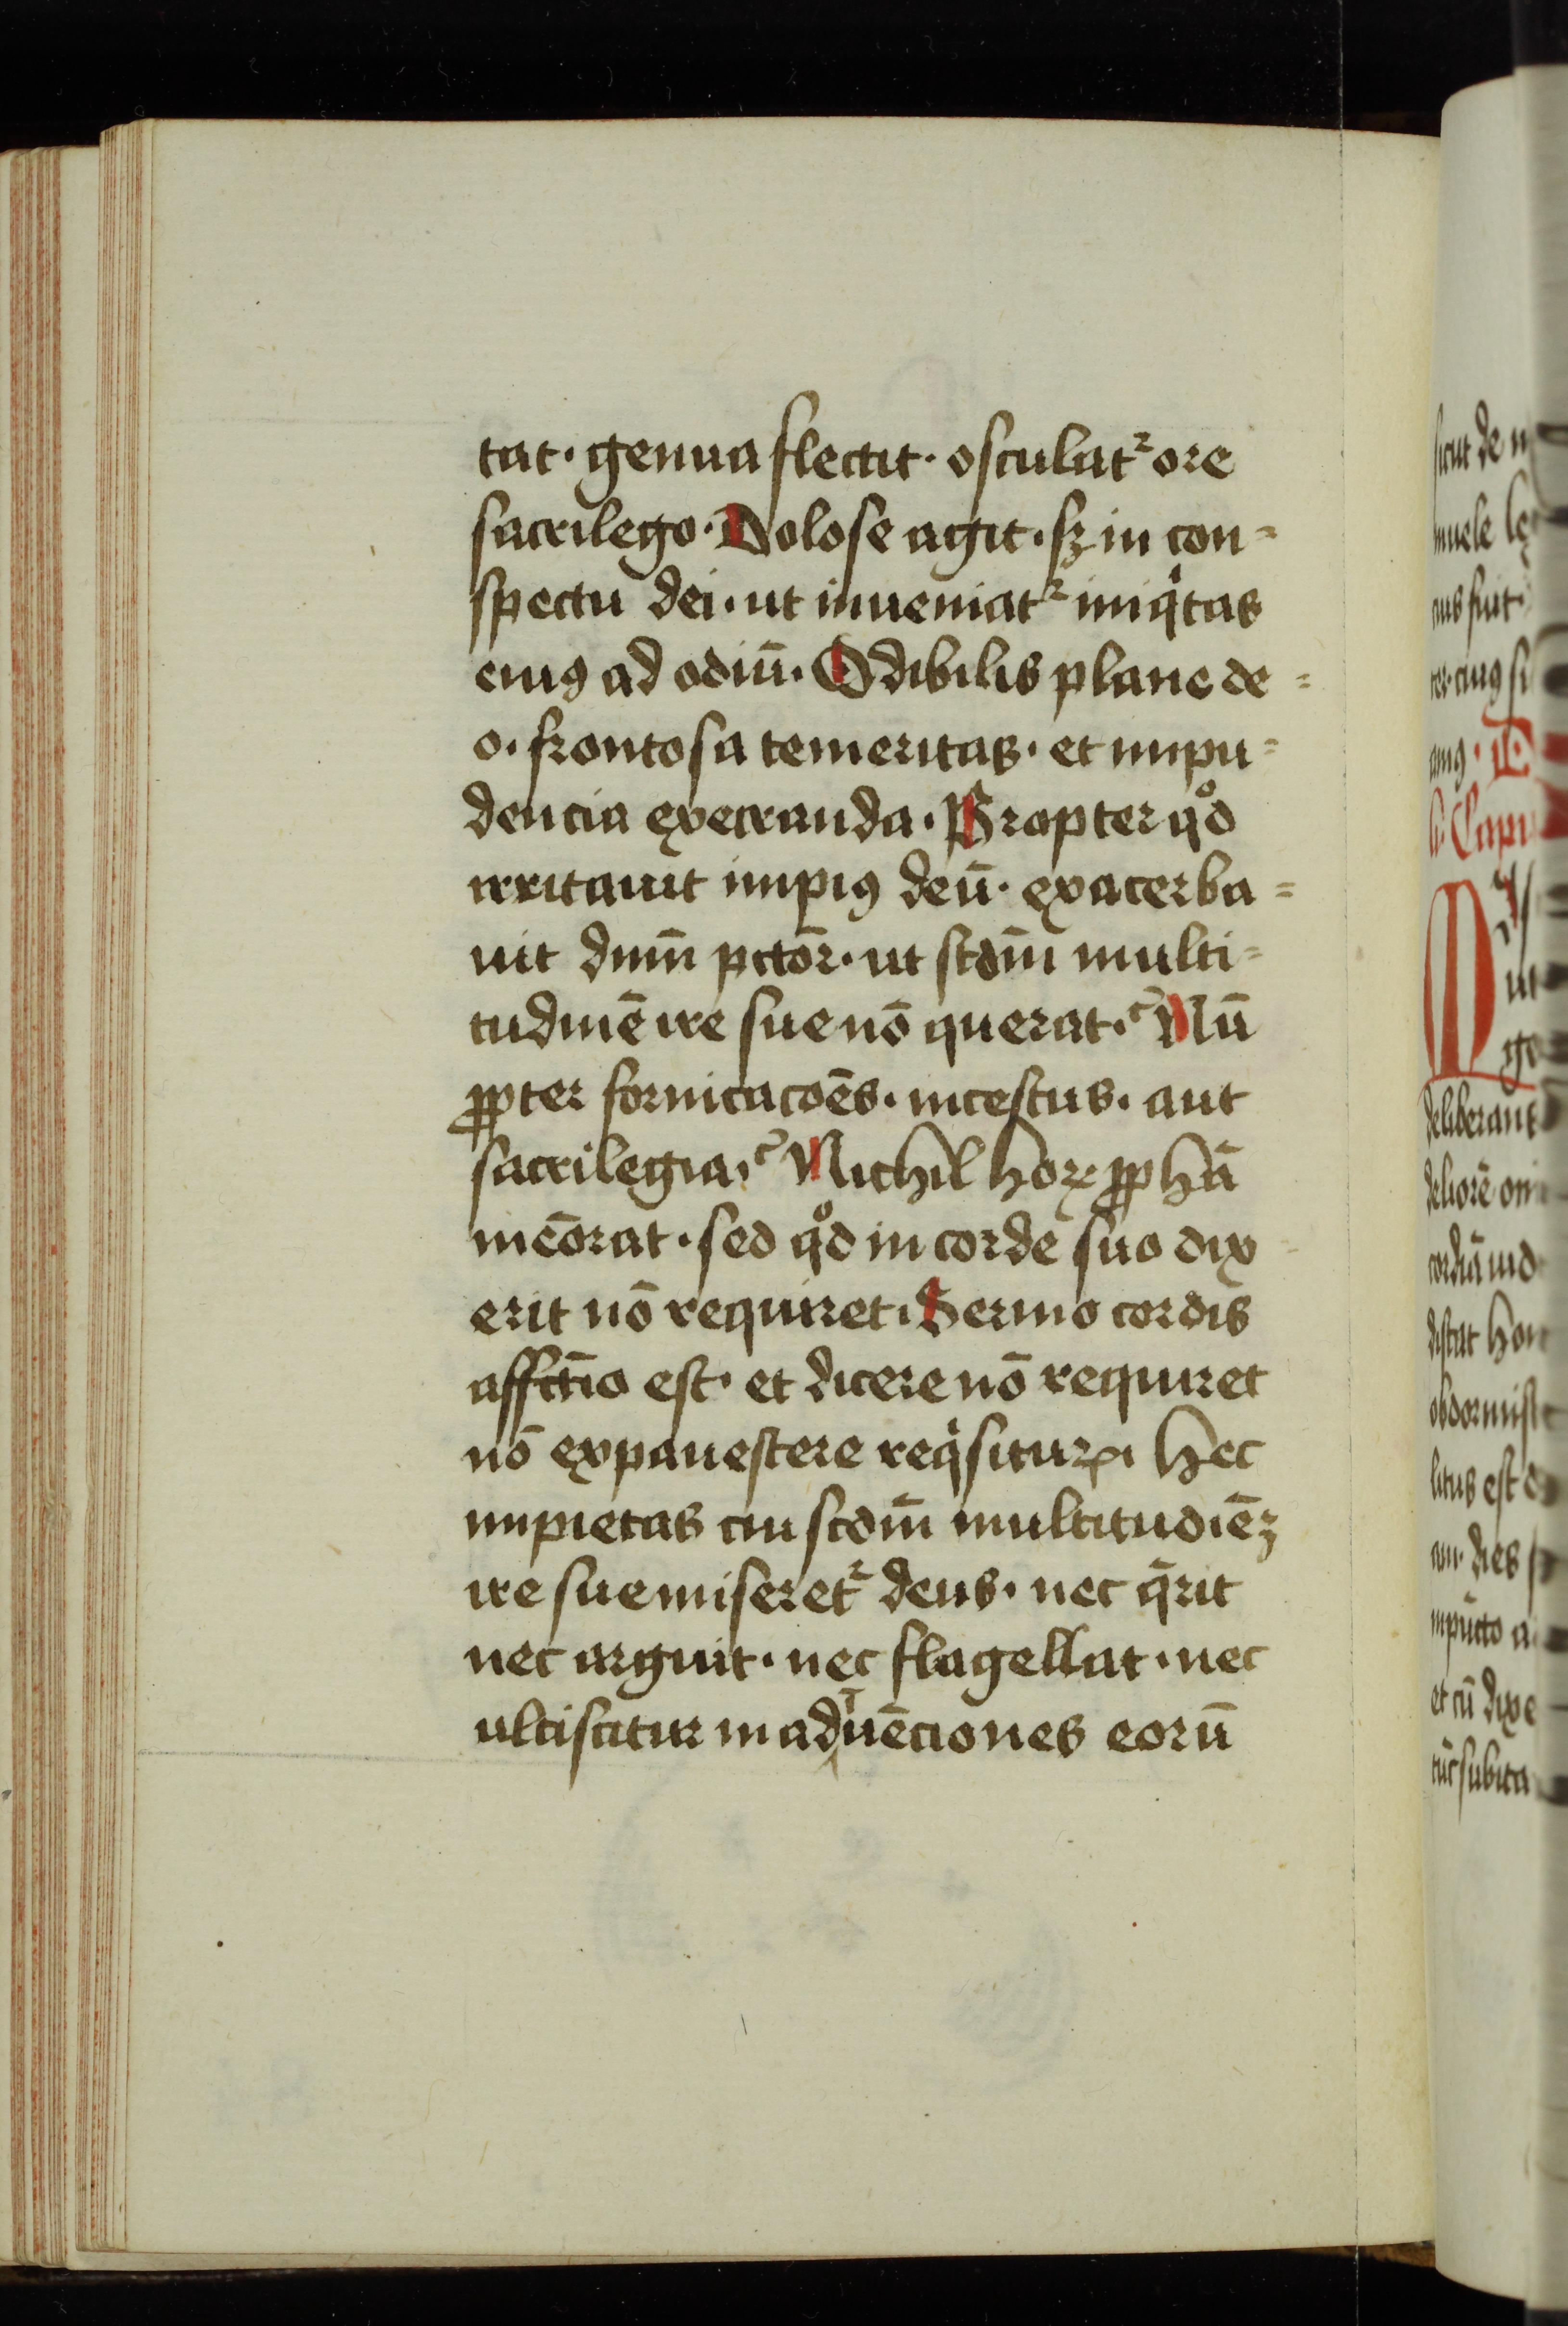 tat· genua flectit· osculatᷣ ore
sacrilego· Dolose agit· sꝫ in con⸗
spectu dei· ut inueniatᷣ iniqͥtas
eiꝰ ad odiū· Odibilis plane de⸗
o· frontosa temeritas· et inpu⸗
dencia execranda· Propter qͦd
irritauit impiꝰ deū· exacerba⸗
uit dnm̄ pctōr· ut scdm̄ multi⸗
tudinē ire sue nō querat·? Nū
ꝓpter fornicacōēs· incestus· aut
sacrilegia·? Nichil hoꝝ ꝓpha
meōrat· sed qͦd in corde suo dix
erit nō requiret· Sermo cordis
affctīo est· et dicere nō requiret
nō expauescere reqͥsituꝝ· Hec
impietas cui scdm̄ multitudiēꝫ
ire sue miseretᷣ deus· nec q̄rit
nec arguit· nec flagellat· nec
ulciscitur in adinuēciones eorū
sicut de
aus fuit·
deliberant
cordiā
distat
litus est
dies
et cū dixe
subita